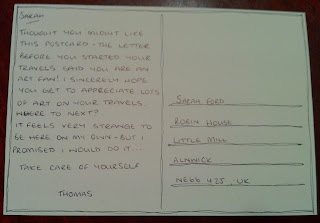 SARAH
THOUGHT YOU MIGHT LIKE
THIS POSTCARD - THE LETTER
BEFORE YOU STARTED YOUR
TRAVELS SAID YOU ARE AN
ART FAN! I SINCERELY HOPE
YOU GET TO APPRECIATE LOTS
OF ART ON YOUR TRAVELS.
WHERE TO NEXT?
IT FEELS VERY STRANGE TO
BE HERE ON MY OWN - BUT I
PROMISED I WOULD DO IT...
TAKE CARE OF YOURSELF
THOMAS
SARAH FORD
ROBIN HOUSE
LITTLE MILL
ALNWICK
NE66 4ZS, UK